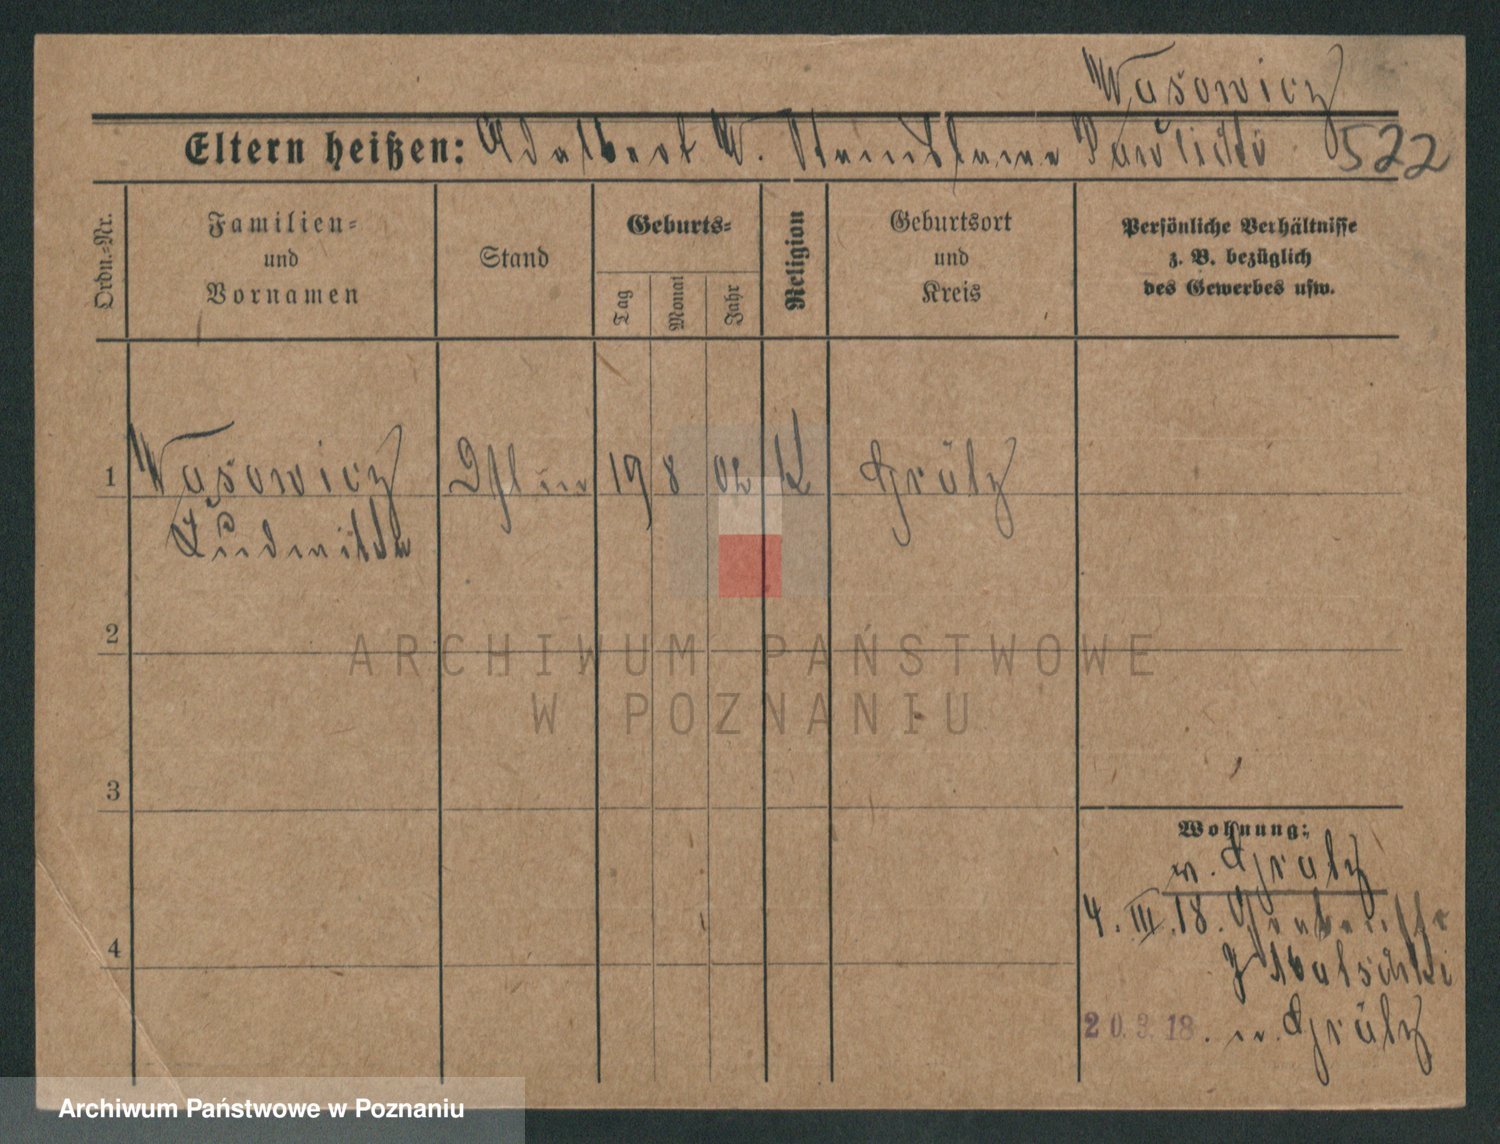 Wasowicz
Eltern heißen: Adalbert W. Stanislawa Pawlicka
522
Ordn.-Nr.
Familien-
und
Vornamen
Stand
Geburts-
Tag
Monat
Jahr
Religion
Geburtsort
und
Kreis
Persönliche Verhältnisse
z. B. bezüglich
des Gewerbes usw.
1 Wasowicz 19 8 02 K Grätz
Ludwika
2
3
4
ARCHIWUM PAŃSTWOWE
W POZNANIU
Wohnung:
v. Grätz
4. III. 18.
20.3.18. n. Grätz
Archiwum Państwowe w Poznaniu